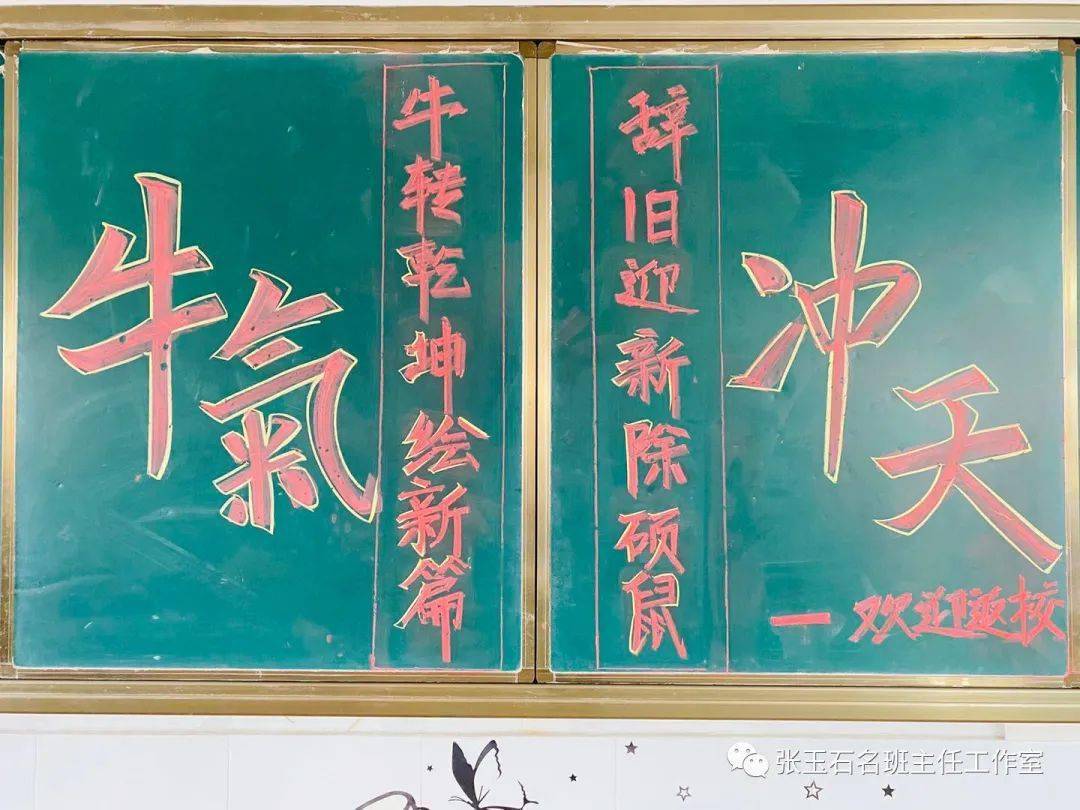 牛氣
牛转乾坤绘新篇
辞旧迎新除硕鼠
冲天
一欢迎返校
张玉石名班主任工作室